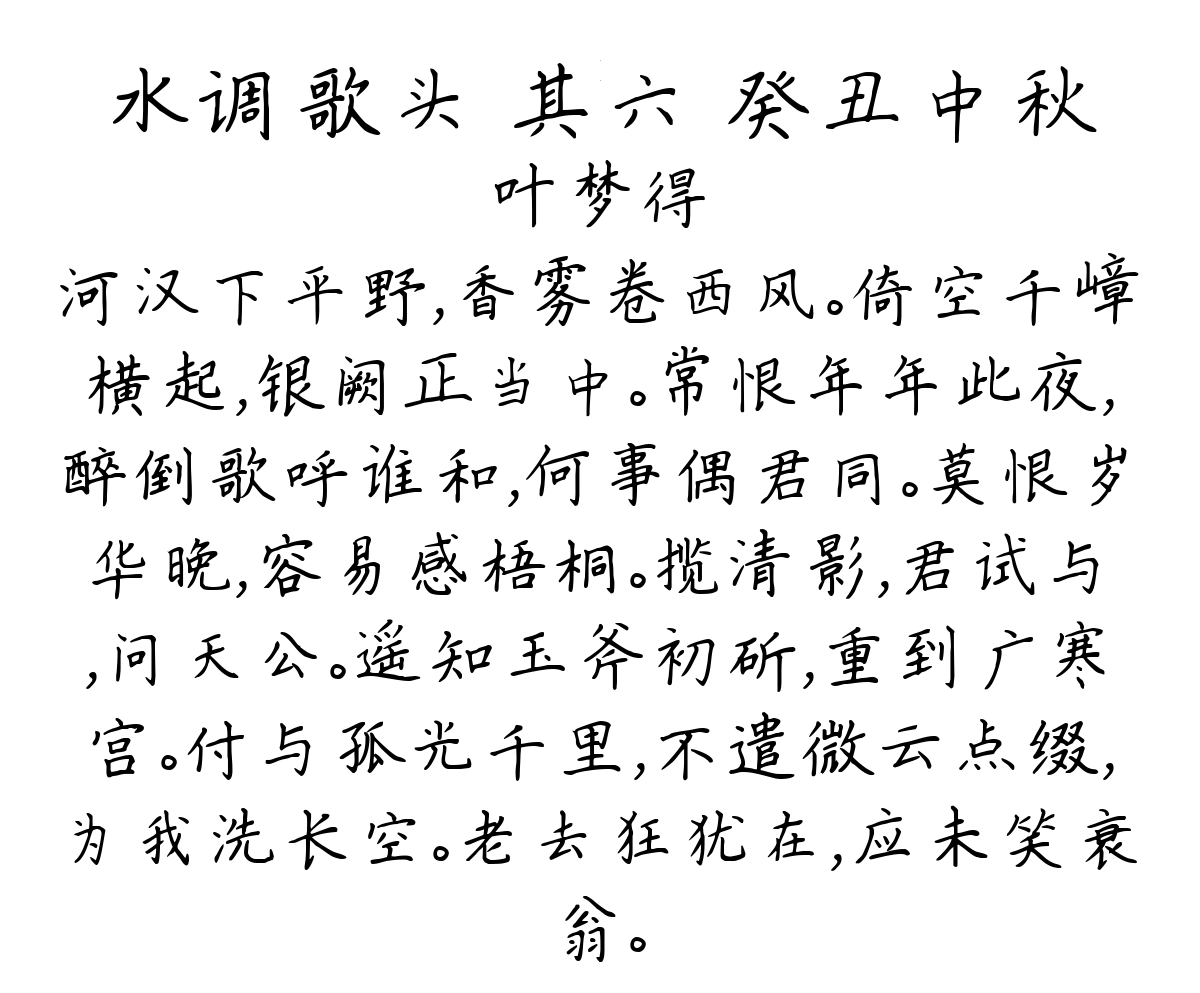 水调歌头 其六 癸丑中秋
叶梦得
河汉下平野,香雾卷西风。倚空千嶂
横起,银阙正当中。常恨年年此夜,
醉倒歌呼谁和,何事偶君同。莫恨岁
华晚,容易感梧桐。揽清影,君试与
,问天公。遥知玉斧初斫,重到广寒
宫。付与孤光千里,不遣微云点缀,
为我洗长空。老去狂犹在,应未笑衰
翁。